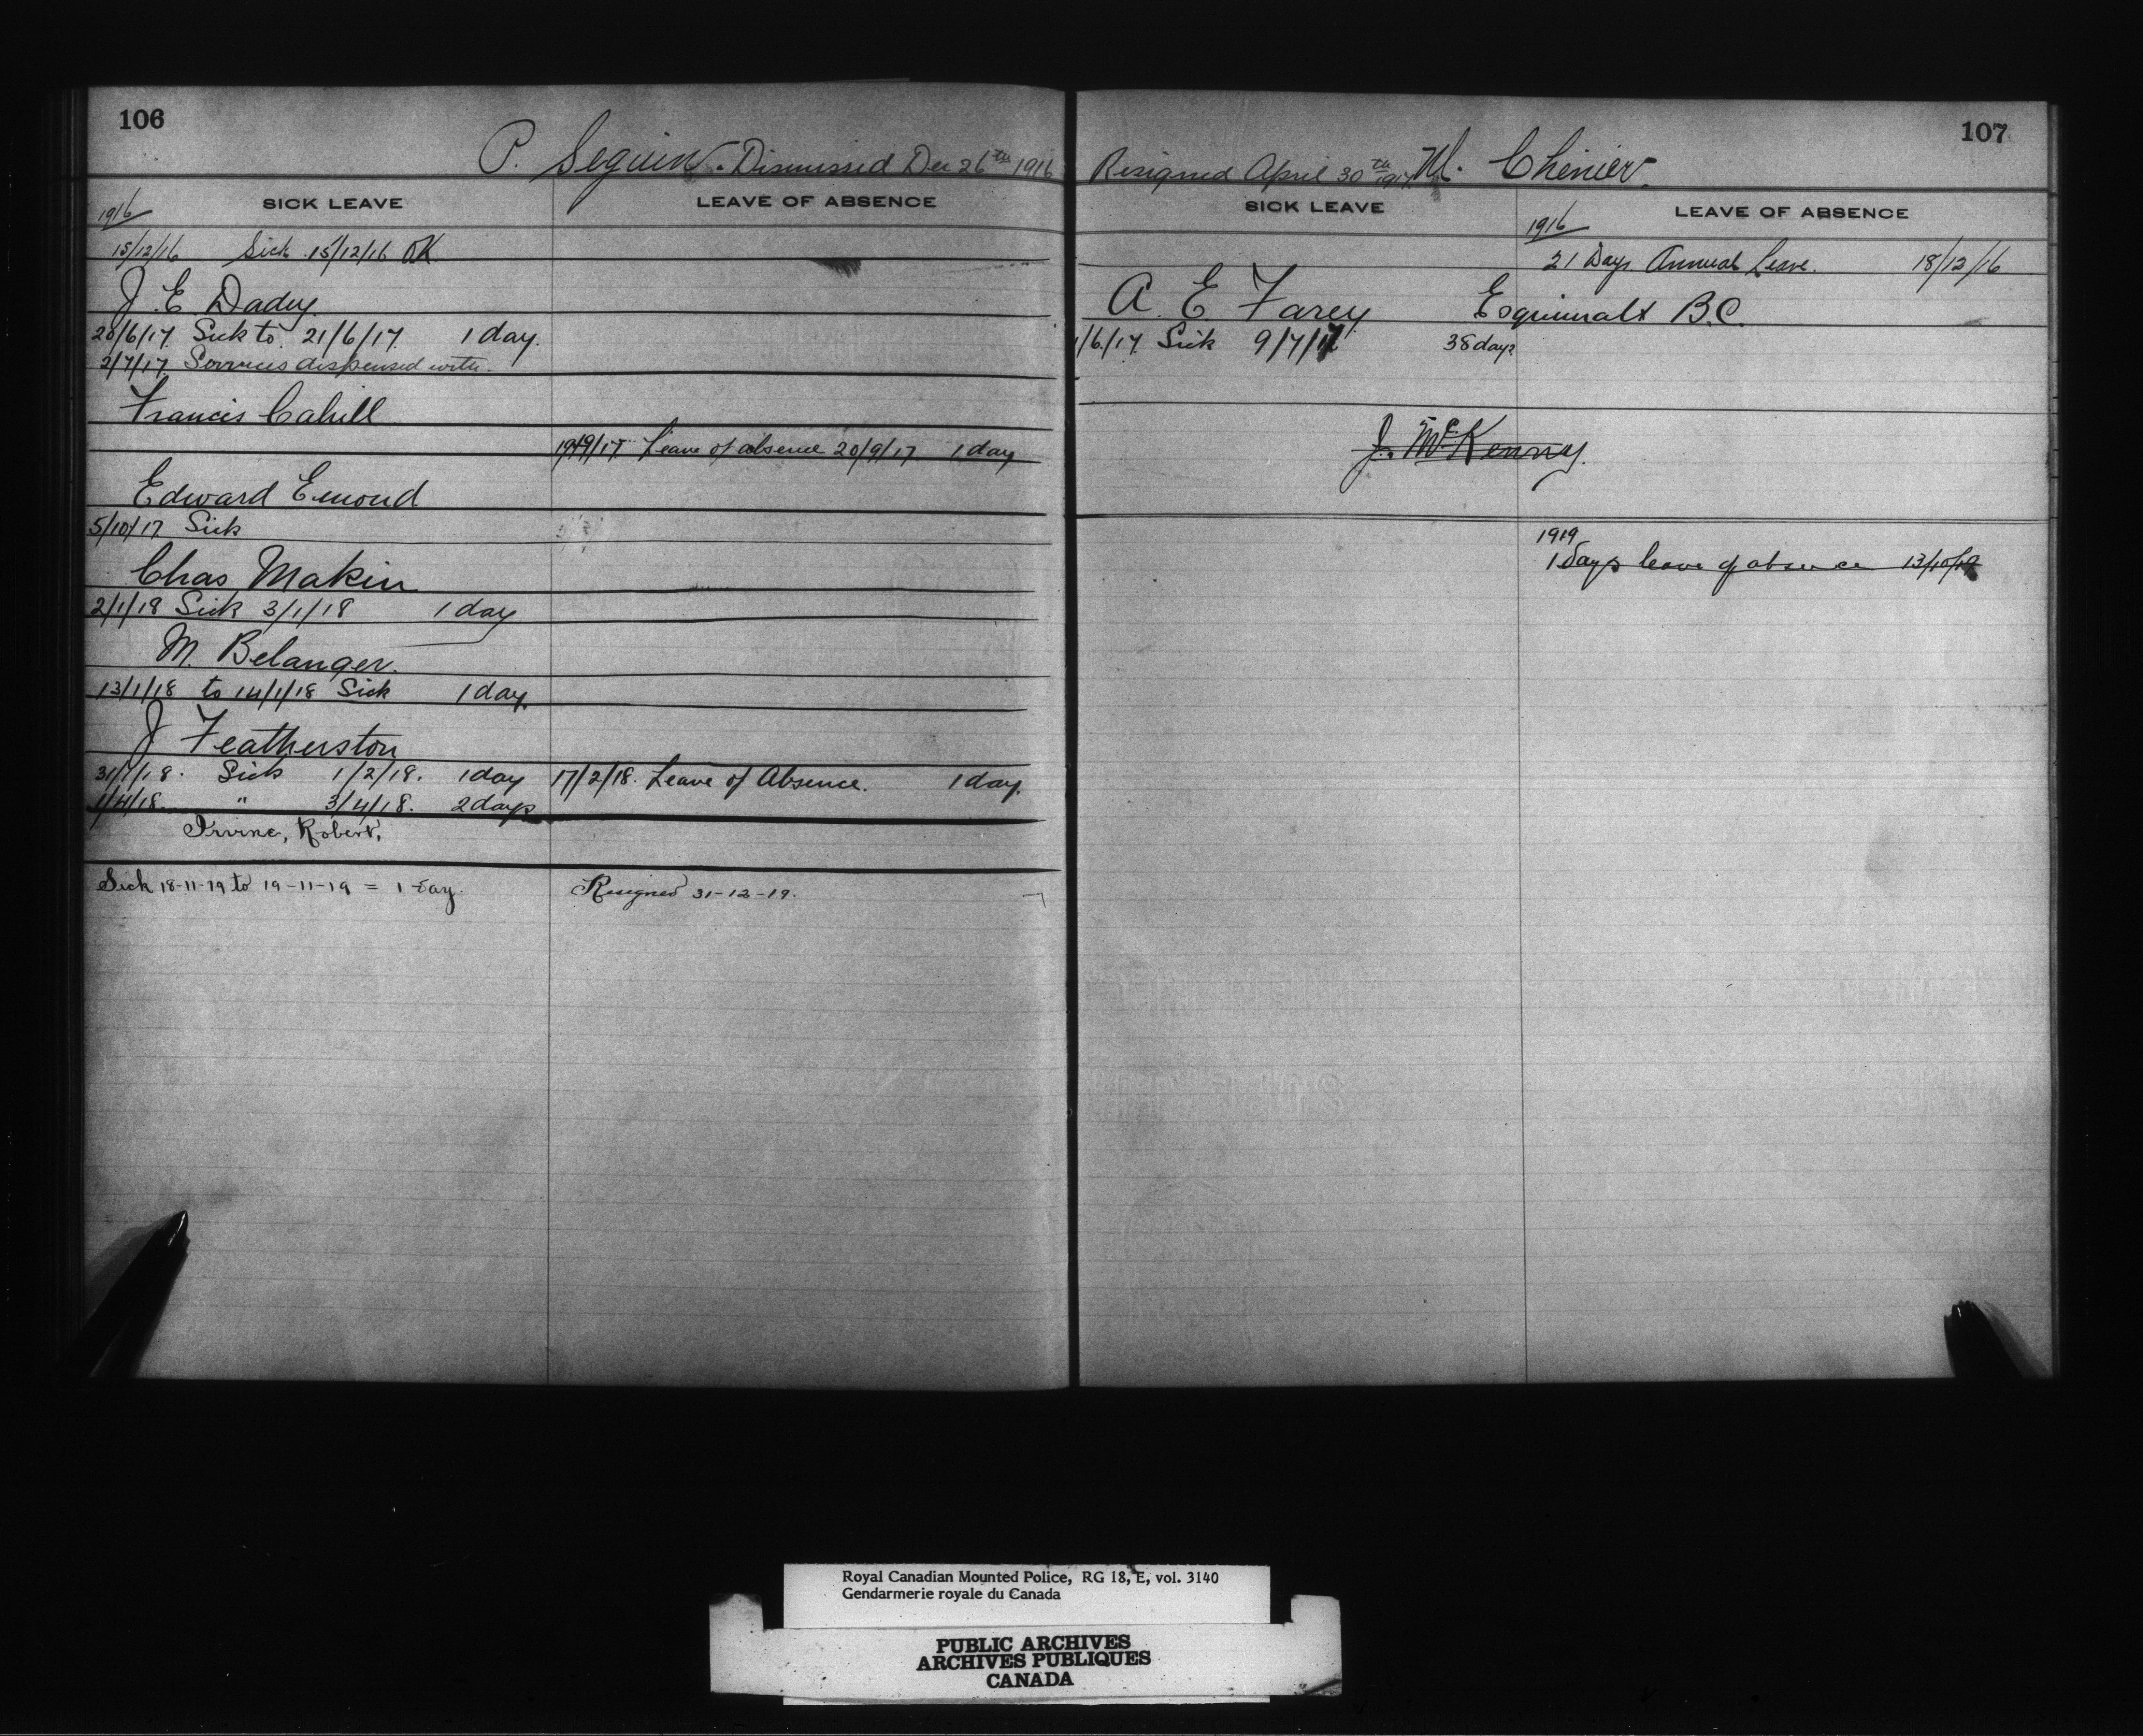 106
P. Seguin. Dismissed Dec 26th 1916
SICK LEAVE
LEAVE OF ABSENCE
1916
15/12/16 Sick 15/12/16 OK
J. E. Dadey.
20/6/17 Sick to 21/6/17. 1 day.
2/7/17 Services dispensed with.
Francis Cahill
19/9/17 Leave of absence 20/9/17 1 day
Edward Emond
5/10/17 Sick
Chas Makin
2/1/18 Sick 3/1/18 1 day
M. Belanger.
13/1/18 to 14/1/18 Sick 1 day.
J Featherston
31/1/18. Sick 1/2/18. 1 day
17/2/18. Leave of Absence. 1 day.
1/4/18. " 3/4/18. 2 days
Irvine, Robert.
Sick 18-11-19 to 19-11-19 = 1 day.
Resigned 31-12-19.
107
Resigned April 30th 1917 M. Chenier.
SICK LEAVE
LEAVE OF ABSENCE
1916
21 Days Annual Leave. 18/12/16
A. E. Farey Esquimalt B.C.
1/6/17. Sick 9/7/17 38 days
J. McKenny.
1919
1 days leave of absence 13/10/19
Royal Canadian Mounted Police, RG 18, E, vol. 3140
Gendarmerie royale du Canada
PUBLIC ARCHIVES
ARCHIVES PUBLIQUES
CANADA